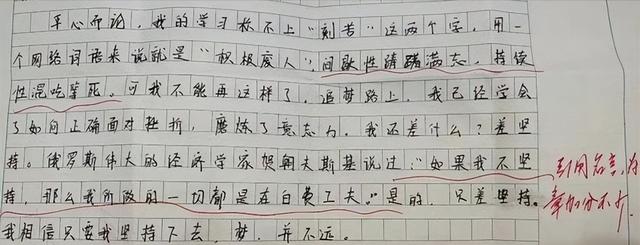 平心而论，我的学习称不上“刻苦”这两个字，用一
个网络词语来说就是“积极废人”，间歇性踌躇满志，持续
性混吃等死。可我不能再这样了，追梦路上，我已经学会
了如何正确面对挫折，磨炼了意志力。我还差什么？差坚
持。俄罗斯伟大的经济学家契朝夫斯基说过，“如果我不坚
持，那么我所做的一切都是在白费工夫。”是的，只差坚持。
我相信只要我坚持下去，梦，并不远。
引用名言，为
文章加分不少